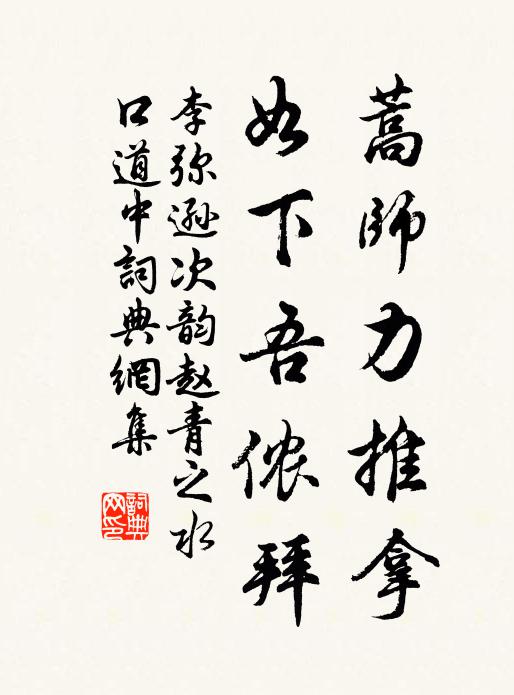 蒿師力推拿
如下吾侬拜
李弥遜次韵赵青之水
口道中詞典網集
詞典网印